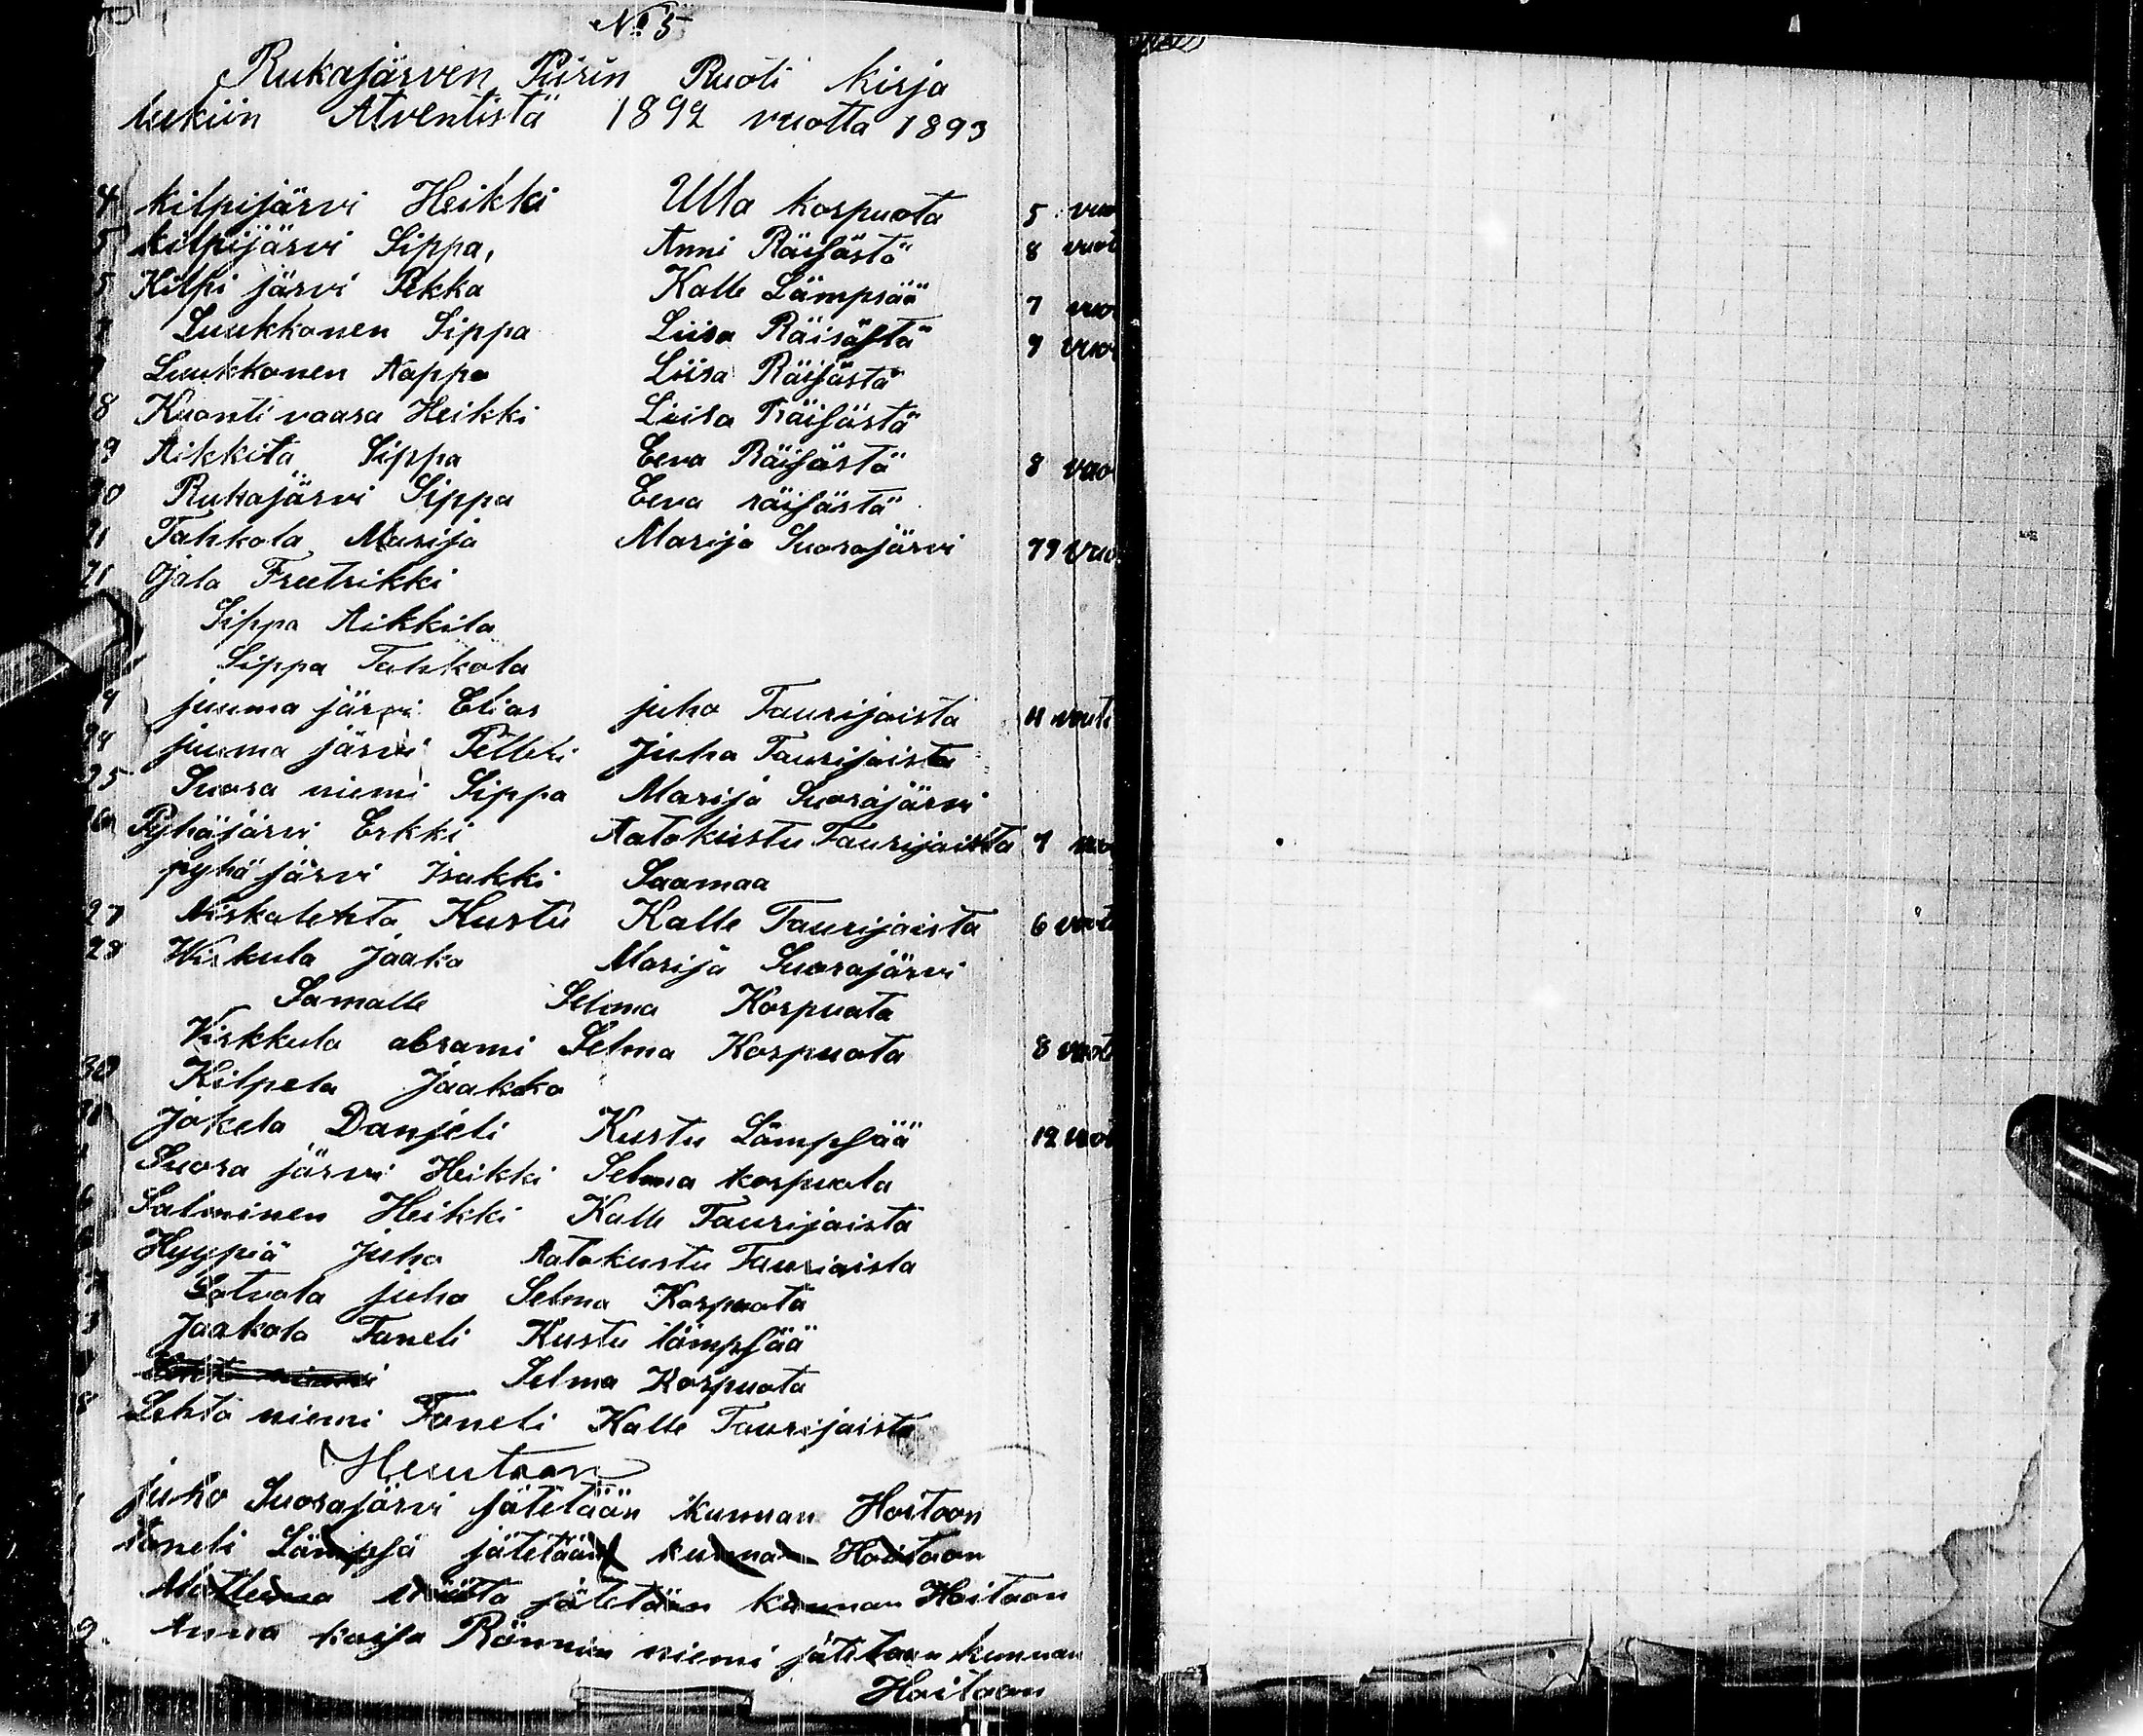 № 5
Rukajärven Piirin Ruoti kirja
lukiin Atventistä 1892 vuotta 1893
4 kilpijärvi Heikki Ulla korpuota 5 vuo
5 kilpijärvi Sippa, Anni Räisästä 8 vuot
5 Kilpi järvi Pekka Kalle Lämpsää 7 vuo
Luukkonen Sippa Liisa Räisästä 9 vuo
Luukkonen Aappo Liisa Räisästä
8 Kuontivaara Heikki Liisa Räisästä
9 Aikkila Sippa Eeva Räisästä 8 vuo
20 Rukajärvi Sippa Eeva räisästä
21 Tahkola Marija Marija Suorajärvi 79 vuo
21 Ojala Freetrikki
Sippa Aikkila
Sippa Tahkola
juuma järvi Elias juho Taurijaista 11 vuoti
24 juuma järvi Petteri Juho Taurijaista
25 Suora niemi Sippa Marija Suorajärvi
26 Pyhäjärvi Erkki Aatokustu Taurijaista 7 vuo
pyhä järvi Isakki Saamaa
27 Niskalehto Kustu Kalle Taurijaista 6 vuoti
28 Wirkula Jaako Marija Suorajärvi
Samalle Selma Korpuota
Virkkula abrami Selma Korpuota 8 vuoti
30 Kilpela Jaakko
31 Jokela Danjeli Kustu Lämpsää 12 vuot
Suora järvi Heikki Selma korpuota
Salminen Heikki Kalle Taurijaista
Hyypiä Juho Aatokustu Taurijaista
juho Selma Korpuota
Jaakola Taneli Kustu lämpsää
Selma Korpuota
8 Lehto niemi Taneli Kalle Taurijaista
Huutoon
juho Suorajärvi jätetään kunnan Hoitoon
taneli Lämpsä jätetään kunnan Hoitoon
jätetään kunnan Hoitoon
Anna kaisa niemi jätetään kunnan
Hoitoon